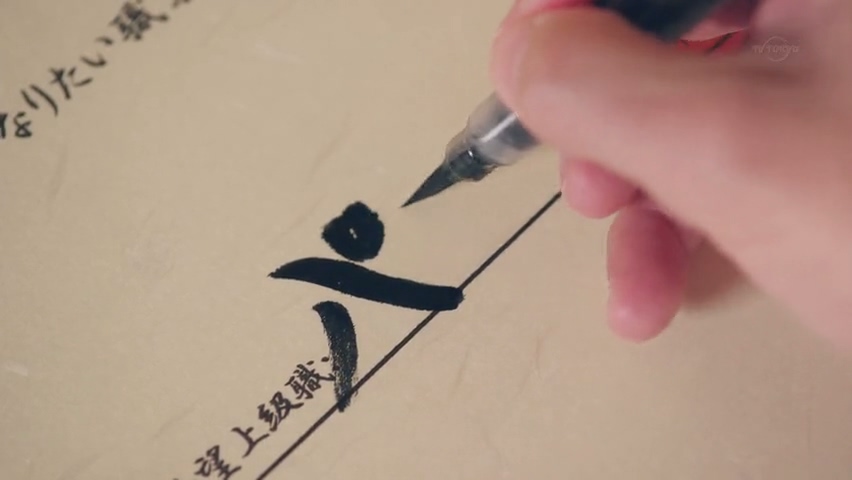 なりたい職
パ
望上級職